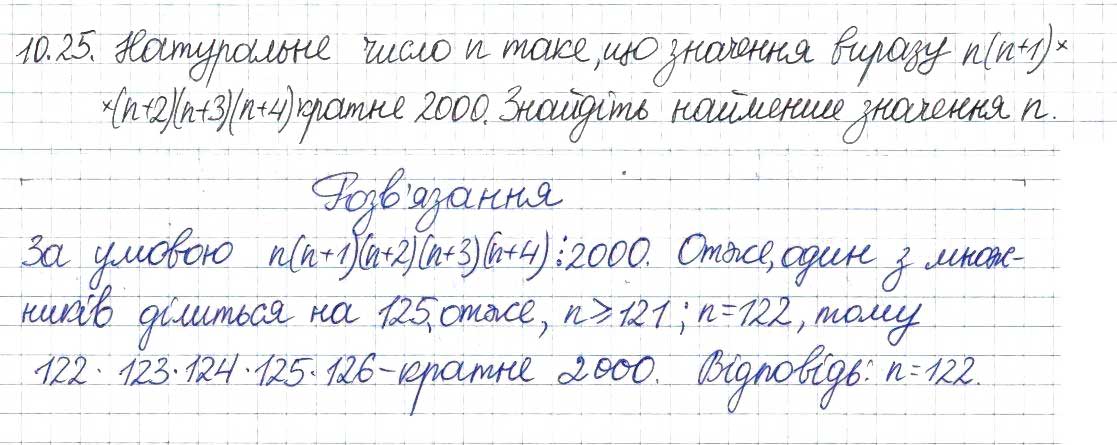 10.25. Натуральне число n таке, що значення виразу n(n+1)×
×(n+2)(n+3)(n+4) кратне 2000. Знайдіть найменше значення n.
Розв'язання
За умовою n(n+1)(n+2)(n+3)(n+4)⋮2000. Отже, один з множ-
ників ділиться на 125, отже, n⩾121; n=122, тому
122·123·124·125·126-кратне 2000. Відповідь: n=122.